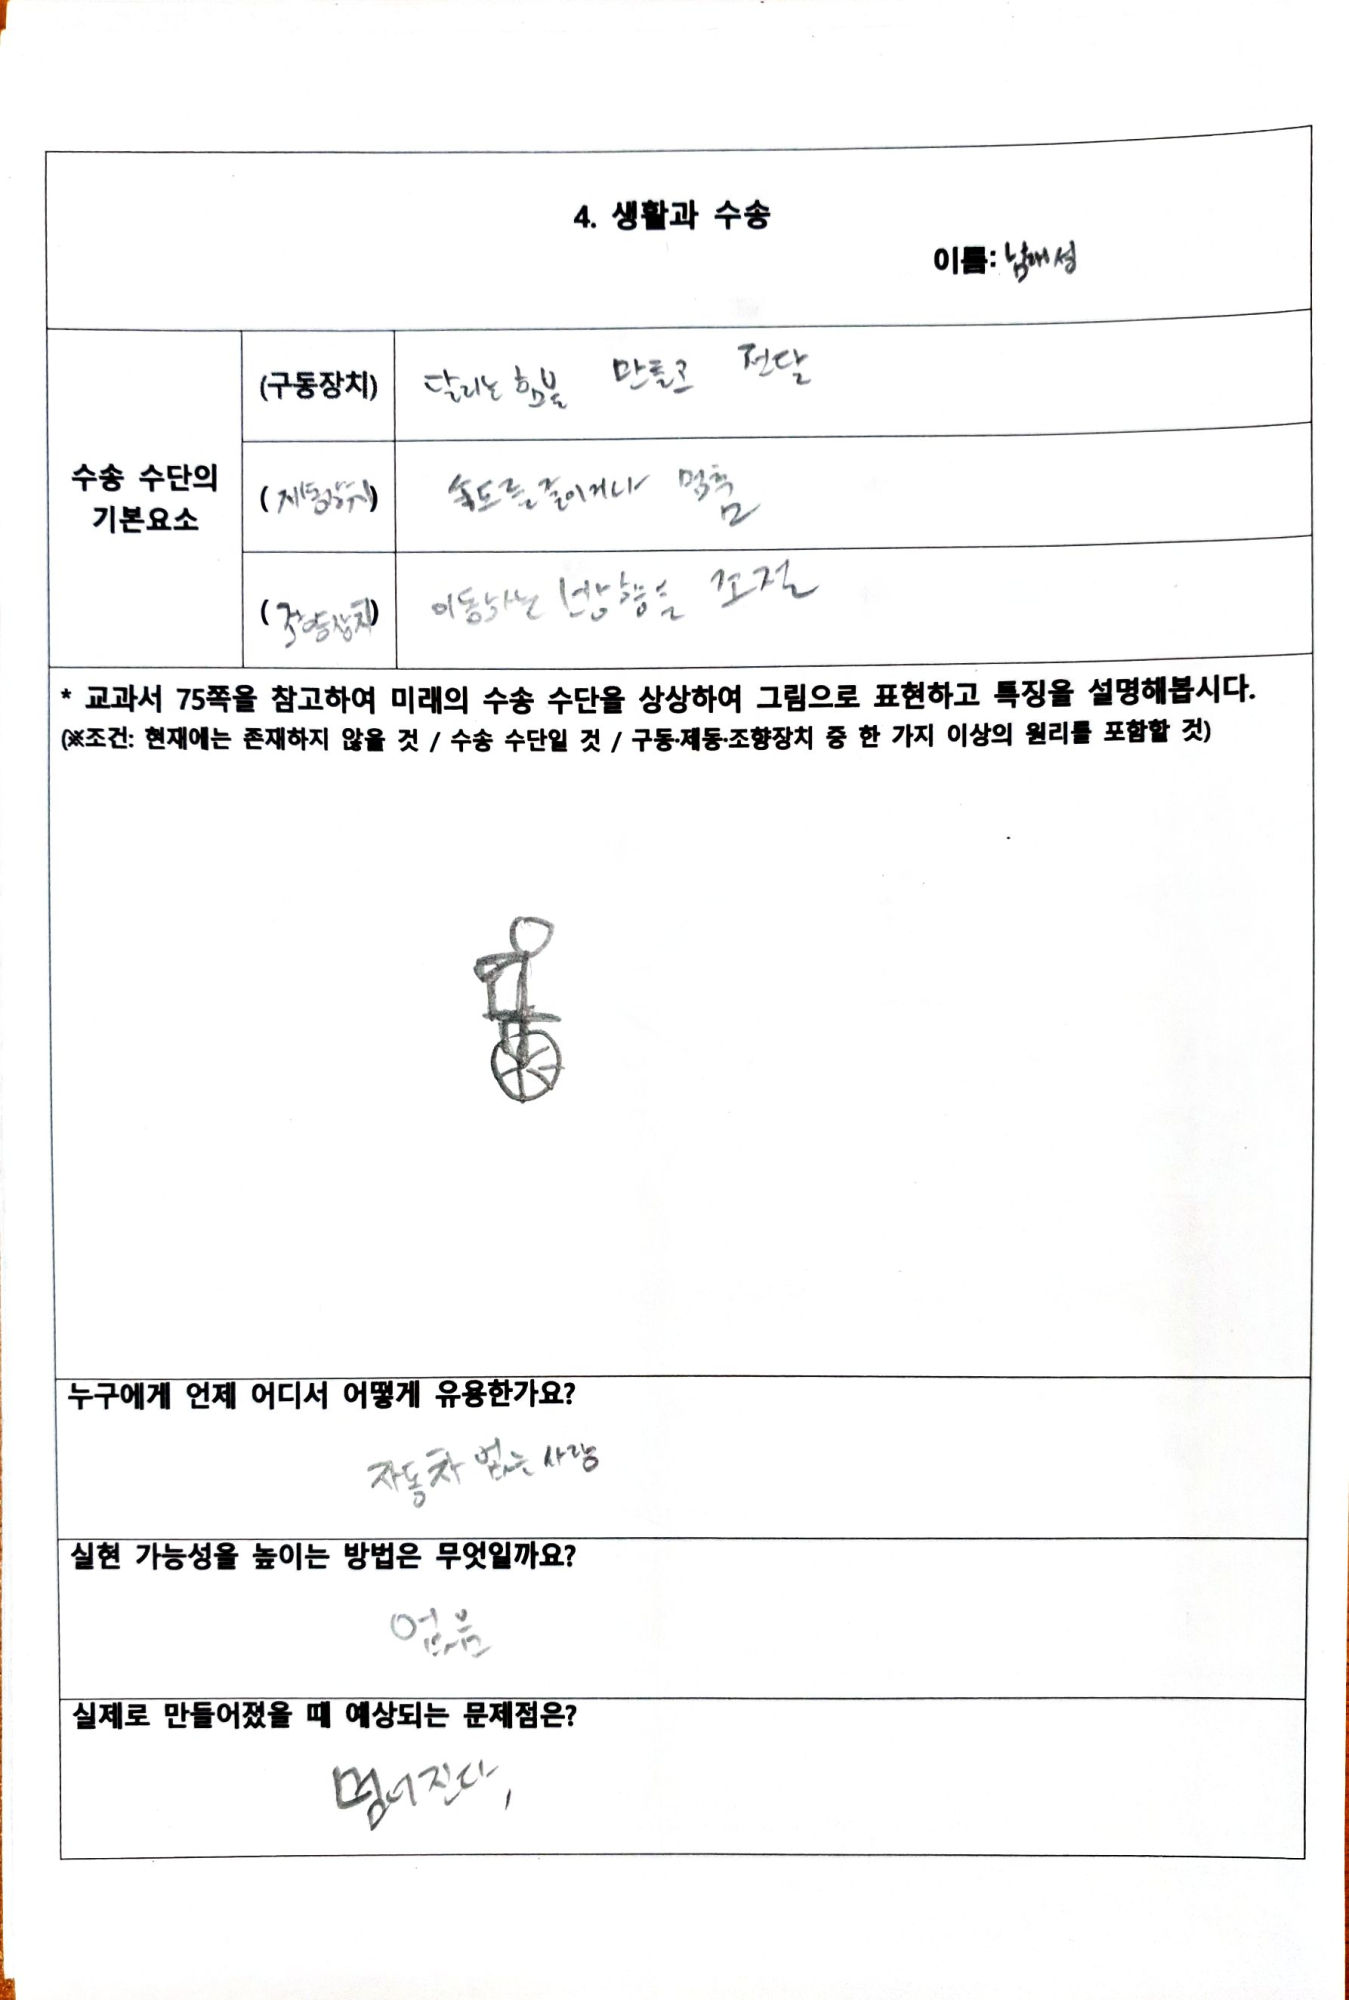 4. 생활과 수송
이름: 남해성
수송 수단의
기본요소
(구동장치) 달리는 힘을 만들고 전달
(제동장치) 속도를 줄이거나 멈춤
(조향장치) 이동하는 방향을 조절
* 교과서 75쪽을 참고하여 미래의 수송 수단을 상상하여 그림으로 표현하고 특징을 설명해봅시다.
(※조건: 현재에는 존재하지 않을 것 / 수송 수단일 것 / 구동·제동·조향장치 중 한 가지 이상의 원리를 포함할 것)
누구에게 언제 어디서 어떻게 유용한가요?
자동차 없는 사람
실현 가능성을 높이는 방법은 무엇일까요?
없음
실제로 만들어졌을 때 예상되는 문제점은?